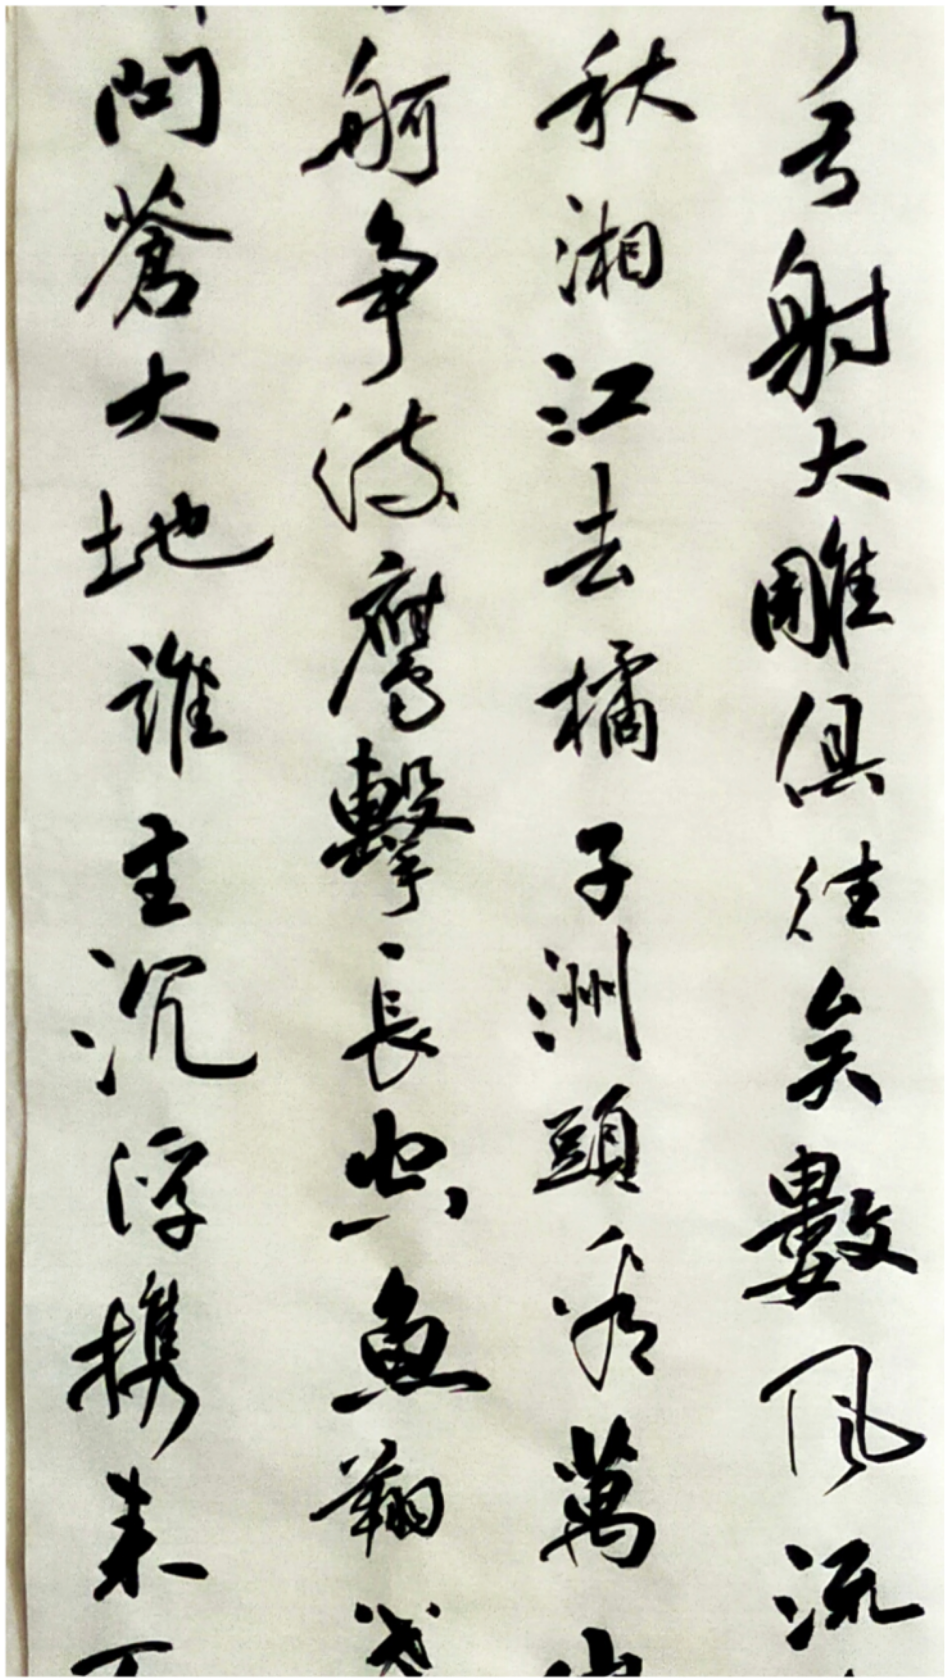 弓射大雕俱往矣數風流
秋湘江去橘子洲頭看萬山
舸争流鷹擊長空魚翔浅
問蒼大地誰主沉浮携来百